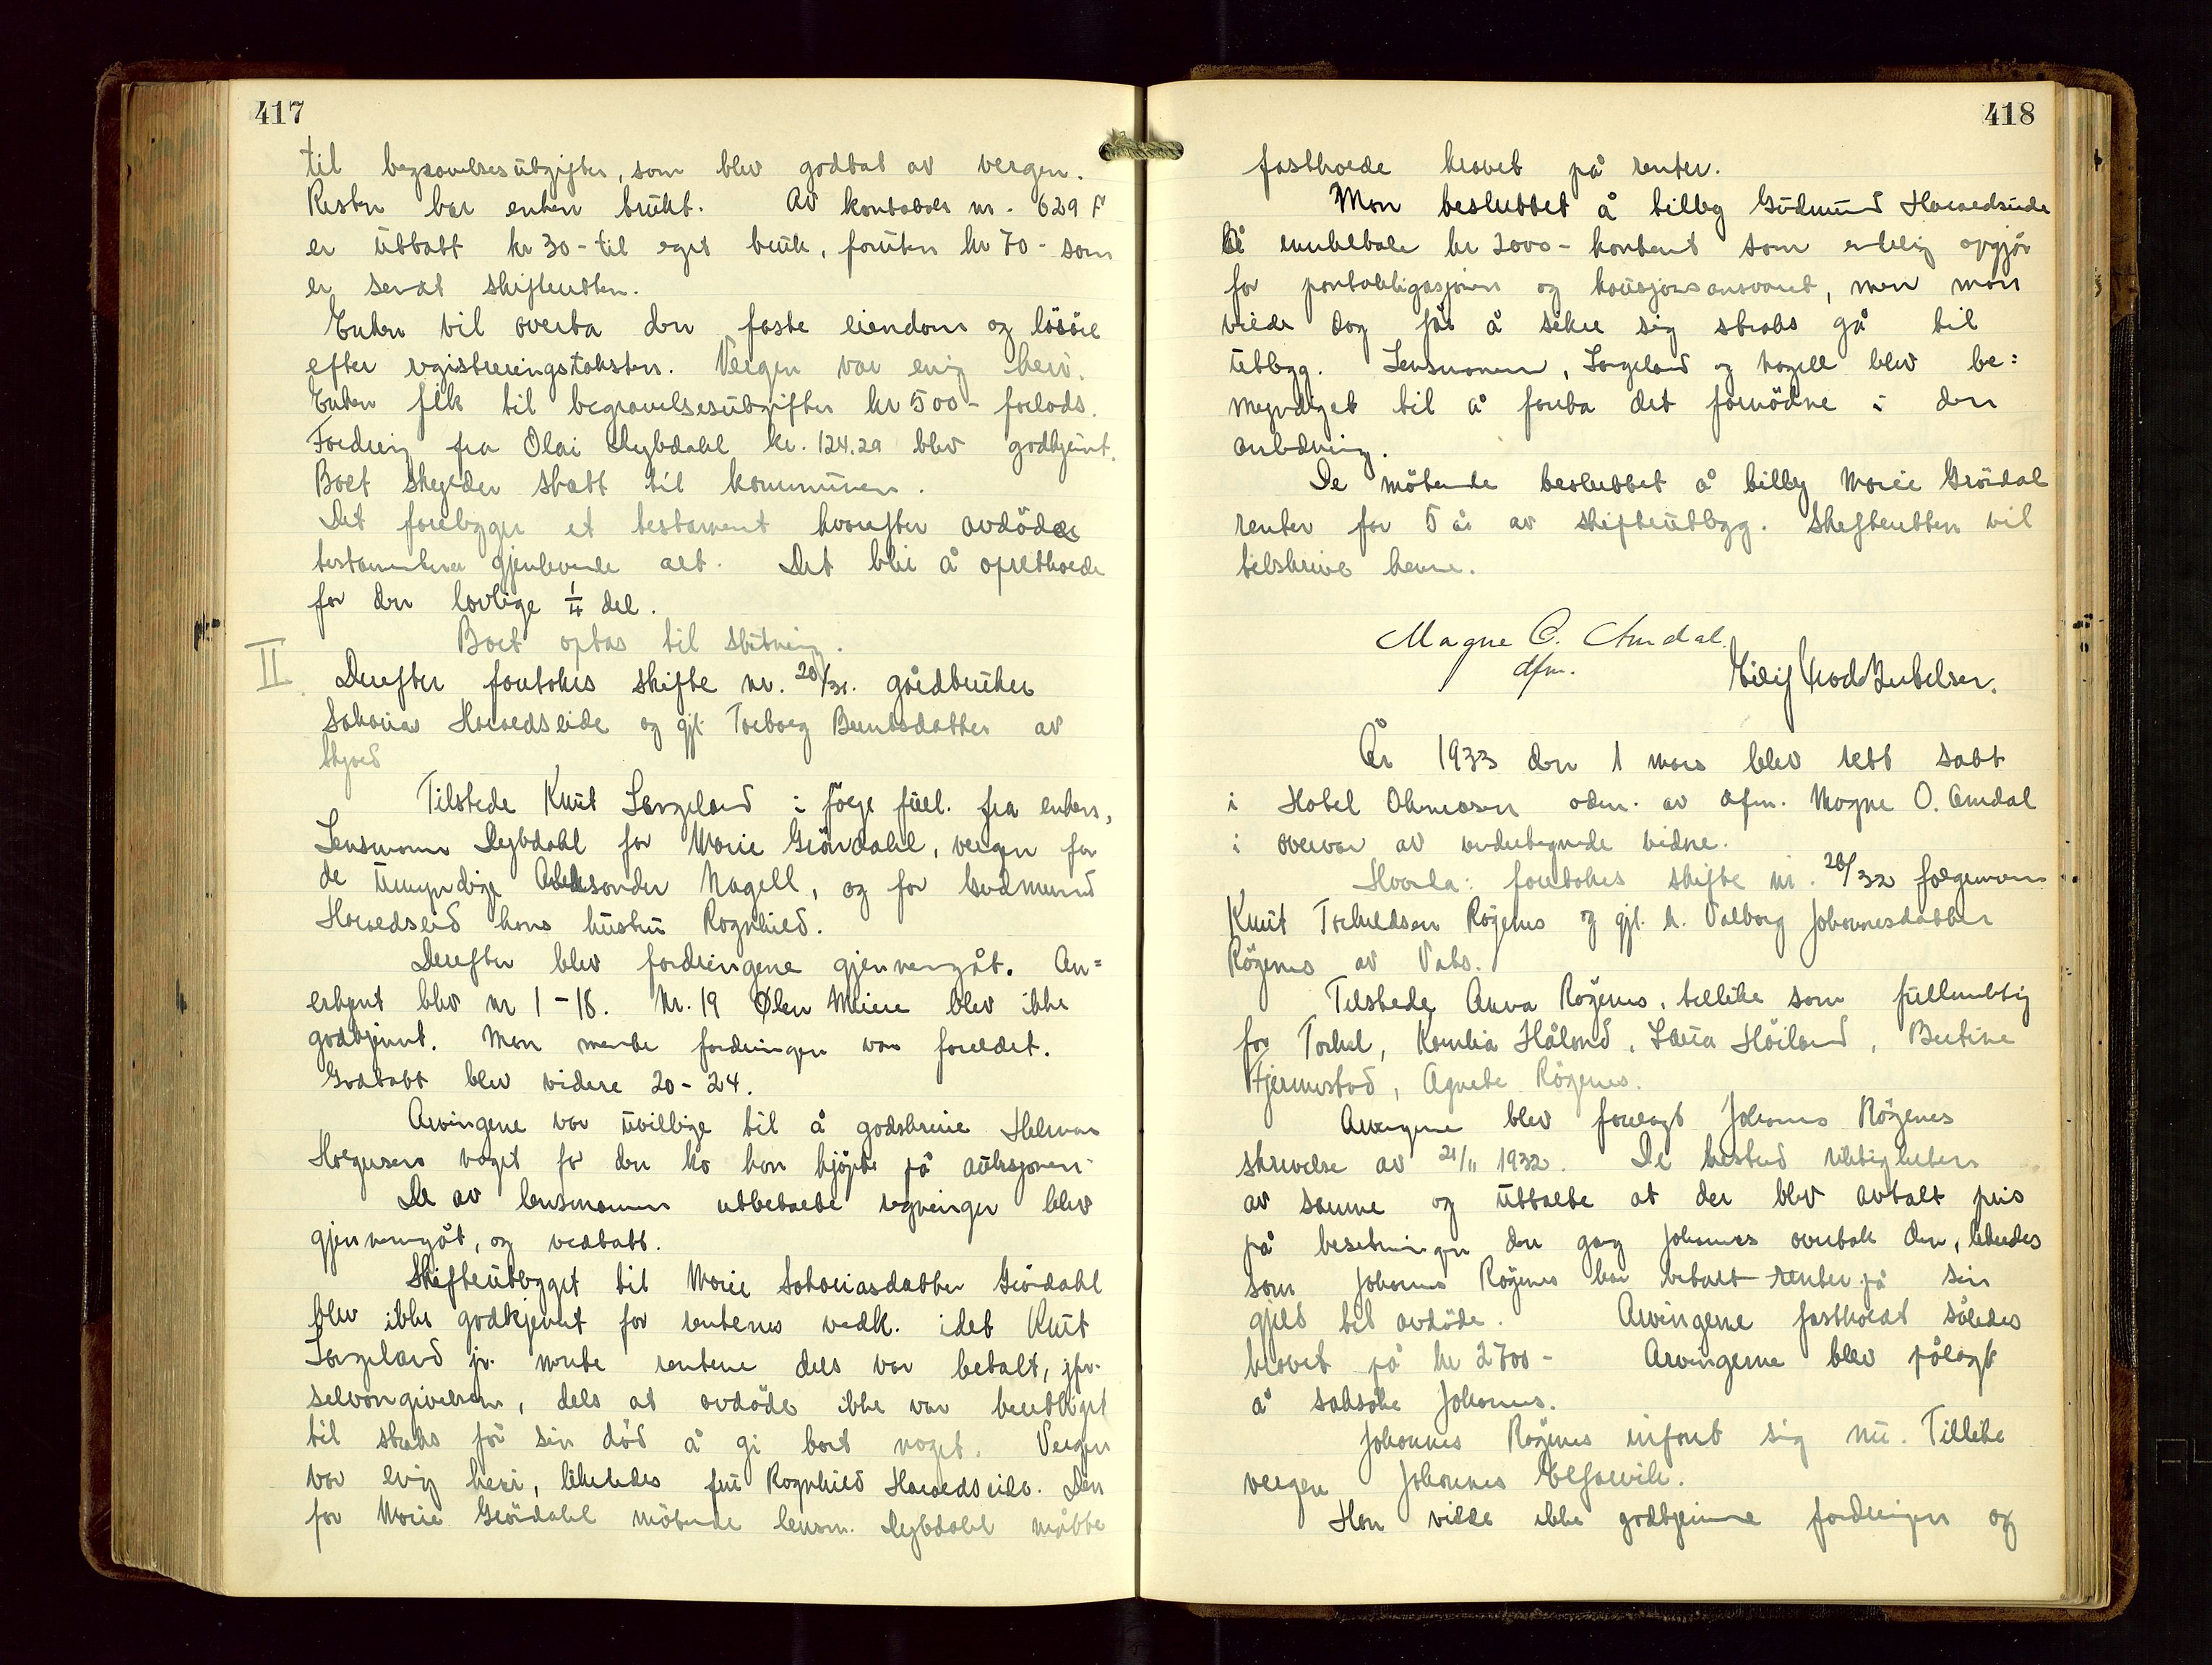 417
til begravelsesutgifter, som blev godtat av vergen.
Resten har enken brukt. Av kontobok nr. 629 F
er uttatt kr 30- til eget bruk, foruten kr 70- som
er sendt skifteretten.
Enken vil overta den faste eiendom og lösöre
efter registreringstaksten. Vergen var enig heri.
Enken fik til begravelsesutgifter kr 500- forlods.
Fordring fra Olai Dybdahl kr. 124.29 blev godkjent.
Boet skylder skatt til kommunen.
Det forelygger et testament hvorefter avdöde
testamenterer gjenlevende alt. Det blir å opretholde
for den lovlige 1/4 del.
Boet optas til slutning.
II Derefter foretokes skifte nr. 20/31. gårdbruker
Sakarias Haraldseide og gjl. Torborg Berntsdatter av
Skjold
Tilstede Knut Langeland i fölge full. fra enken,
Lensmann Dybdahl for Marie Gröndahl, vergen for
de umyndige Aleksander Nagell, og for Gudmund
Haraldseid hans hustru Ragnhild.
Derefter blev fordringene gjennemgåt. An=
erkjent blev nr 1-18. Nr. 19 Ølen Meieri blev ikke
godkjent. Man mente fordringen var foreldet.
Godtatt blev videre 20-24.
Arvingene var uvillige til å godskrive Helmar
Halgersen noget for den ko han kjöpte på auksjonen.
De av lensmannen utbetalte regninger blev
gjennemgåt, og vedtatt.
Skifteutlegget til Marie Sakariasdatter Gröndahl
blev ikke godkjent for rentenes vedk. idet Knut
Langeland jr. mente rentene dels var betalt, jfr.
selvangivelsen, dels at avdöde ikke var berettiget
til straks för sin död å gi bort noget. Vergen
var enig heri, likeledes fru Ragnhild Haraldseide. Den
for Marie Gröndahl mötende lensm. Dybdahl måtte
418
fastholde kravet på renter.
Man besluttet å tilby Gudmund Haraldseide
å innbetale kr 2000- kontant som endelig opgjör
for pantobligasjonen og kausjonsansvaret, men man
vilde dog for å sikre sig straks gå til
utlegg. Lensmannen, Langeland og Nagell blev be=
myndiget til å foreta det fornödne i den
anledning.
De mötende besluttet å tilby Marie Gröndal
renter for 5 år av skifteutlegg. Skifteretten vil
tilskrive henne.
Magne O. Amdal
dfm.
År 1933 den 1 mars blev rett satt
i Hotel Okmosen adm. av dfm. Magne O. Amdal
i overvær av undertegnede vidne.
Hvorda: foretokes skifte nr. 20/32 folgemann
Knut Torkeldsen Röyenes og gjl. h. Valborg Johannesdatter
Röyenes av Vats.
Tilstede Anna Röyenes, tillike som fullmektig
for Torkel, Kornelia Håland, Laura Höiland, Bertine
Hjermestad, Agnete Röyenes.
Arvingene blev forelagt Johannes Röyenes
skrivelse av 21/11 1932. De bestred riktigheten
av samme og uttalte at der blev avtalt pris
på besetningen den gang Johannes overtok den, likeledes
som Johannes Röyenes har betalt renter på sin
gjeld til avdöde. Arvingene fastholdt således
kravet på kr 2700- Arvingerne blev pålagt
å saksöke Johannes.
Johannes Röyenes innfant sig nu. Tillike
vergen Johannes Elfarvik.
Han vilde ikke godkjenne fordringen og